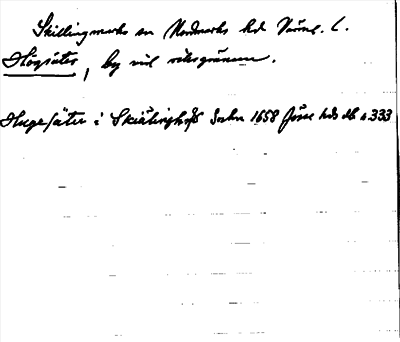 Skillingmarks sn Nordmarks hd Värml. l.
Högsäter, by vid riksgränsen.
Hugesäter i Skiälinghz Sochn 1658 Jösse hds db s. 333